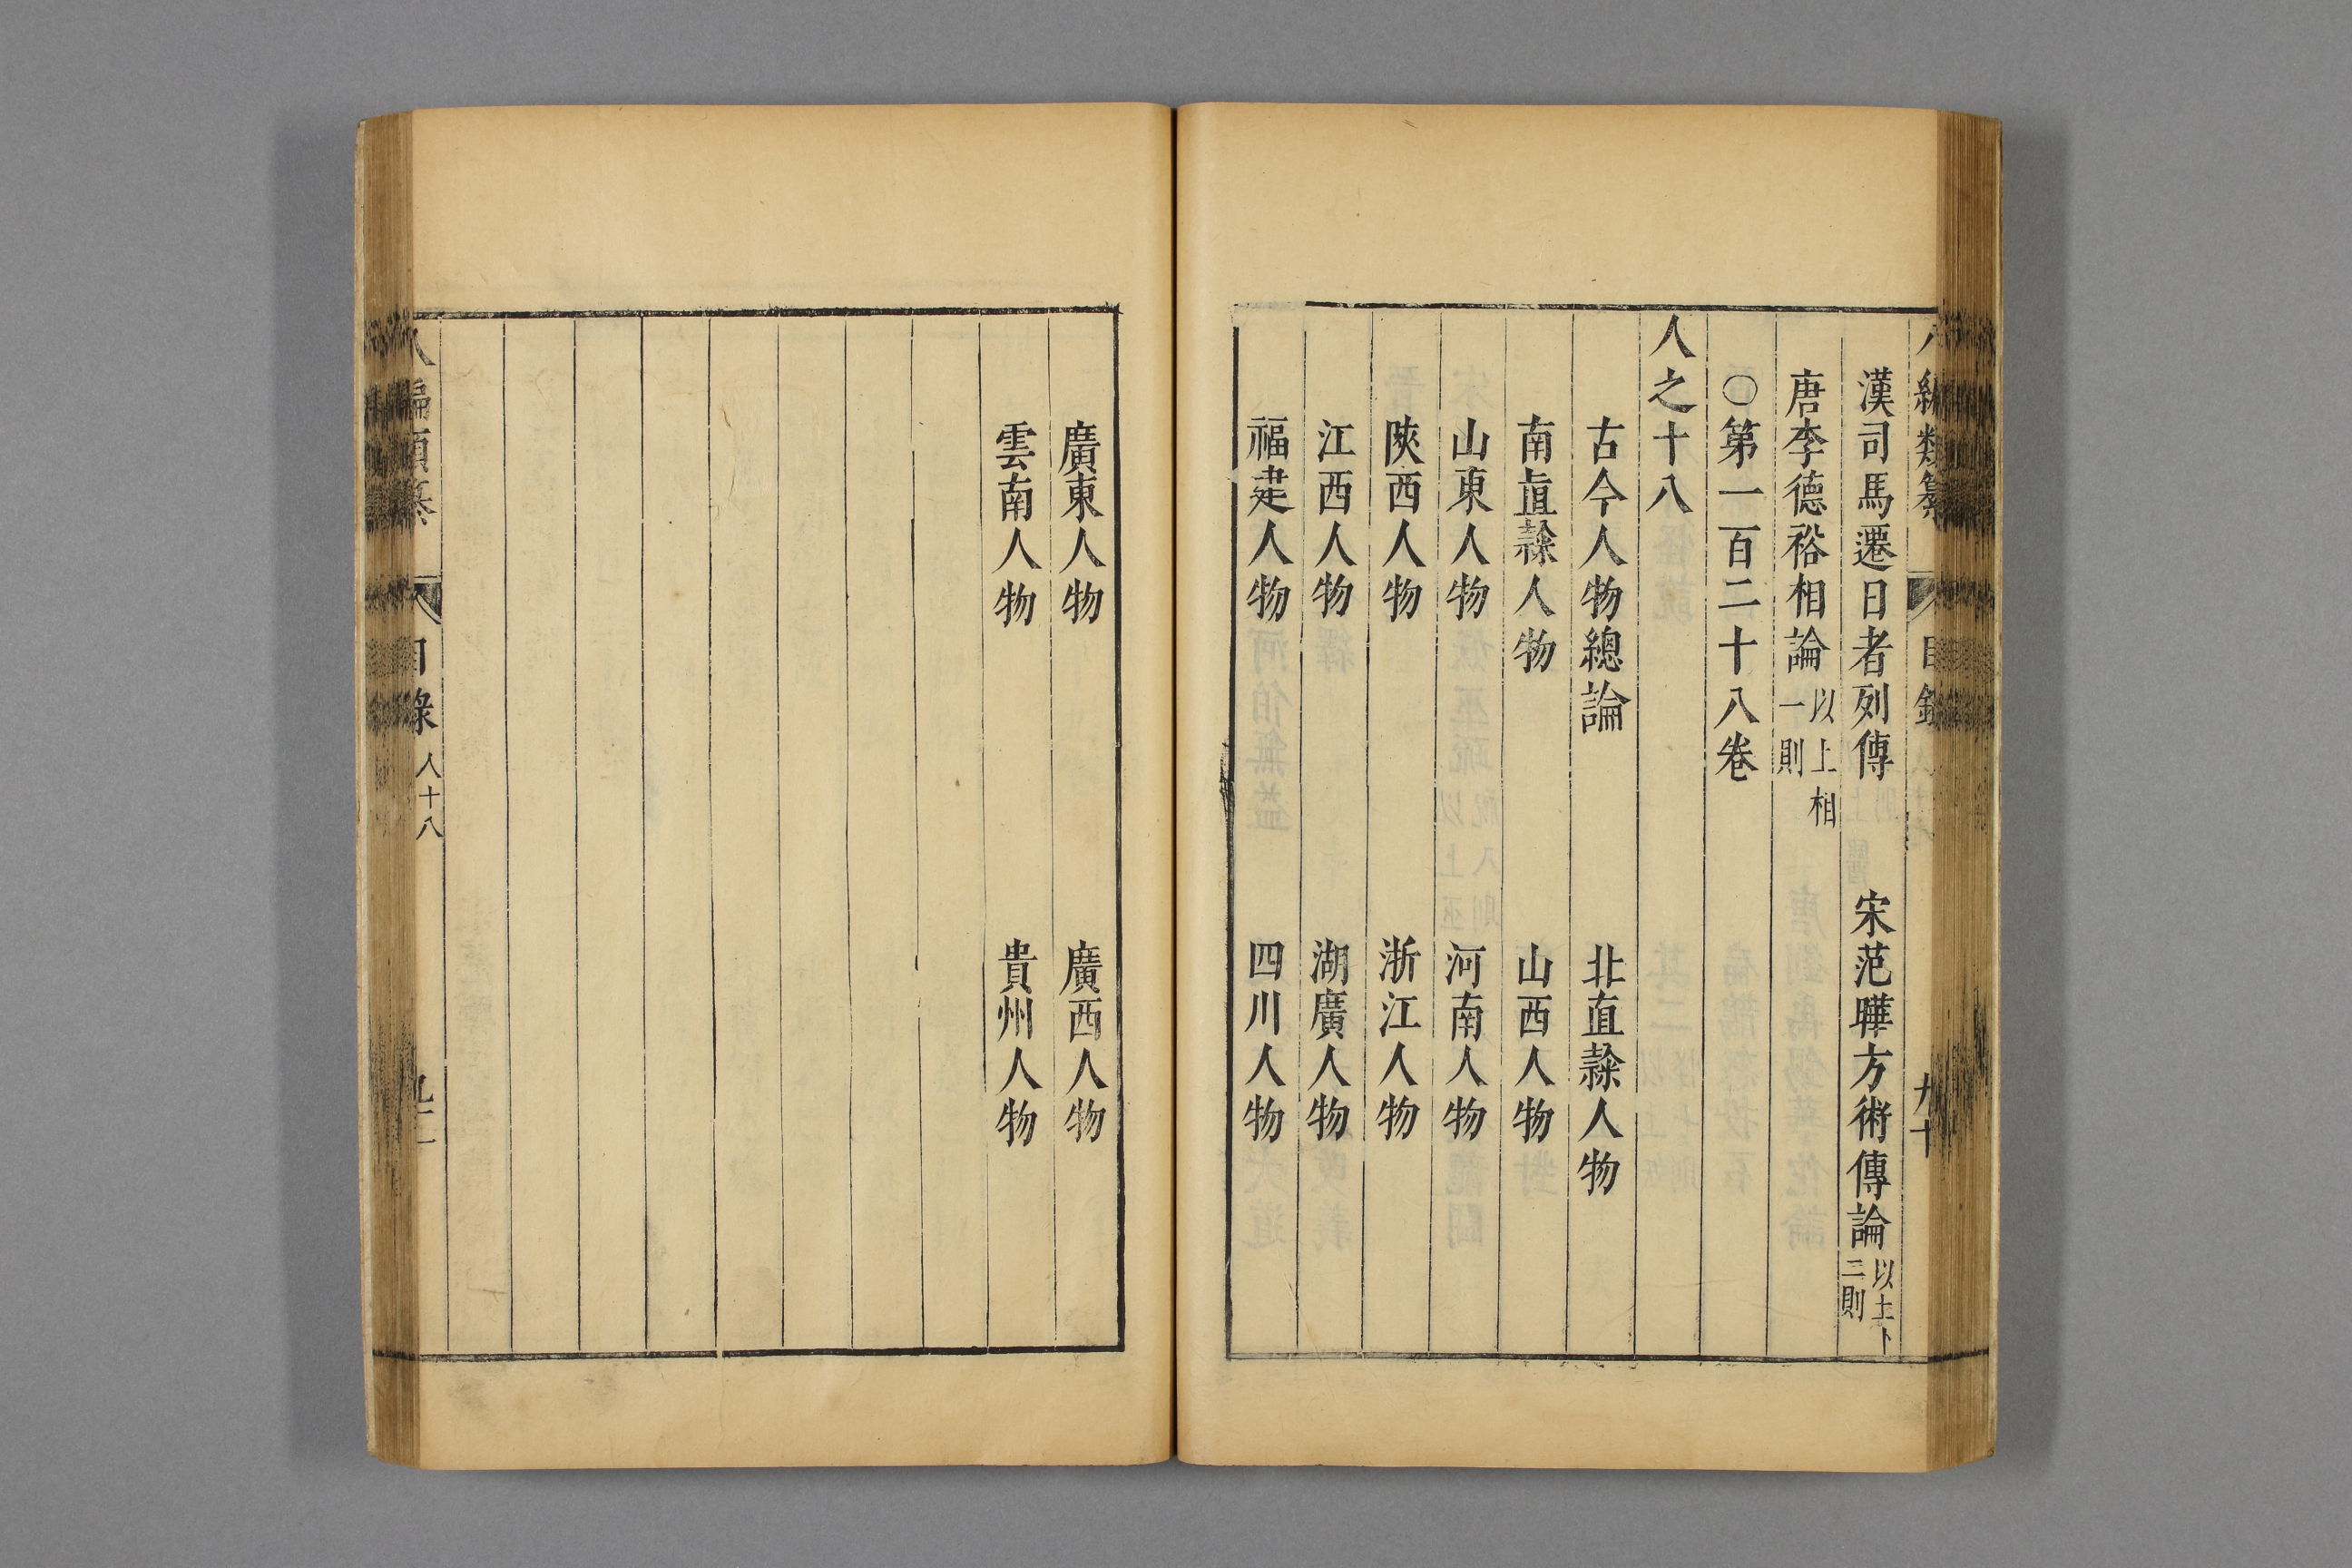 漢司馬遷日者列傳　宋范曄方術傳論　以上卜二則
唐李德裕相論　以上相一則
〇第一百二十八卷
人之十八
古今人物總論　北直隸人物
南直隸人物　山西人物
山東人物　河南人物
陝西人物　浙江人物
江西人物　湖廣人物
福建人物　四川人物
廣東人物　廣西人物
雲南人物　貴州人物
八編類纂　目錄　人十八　九十一